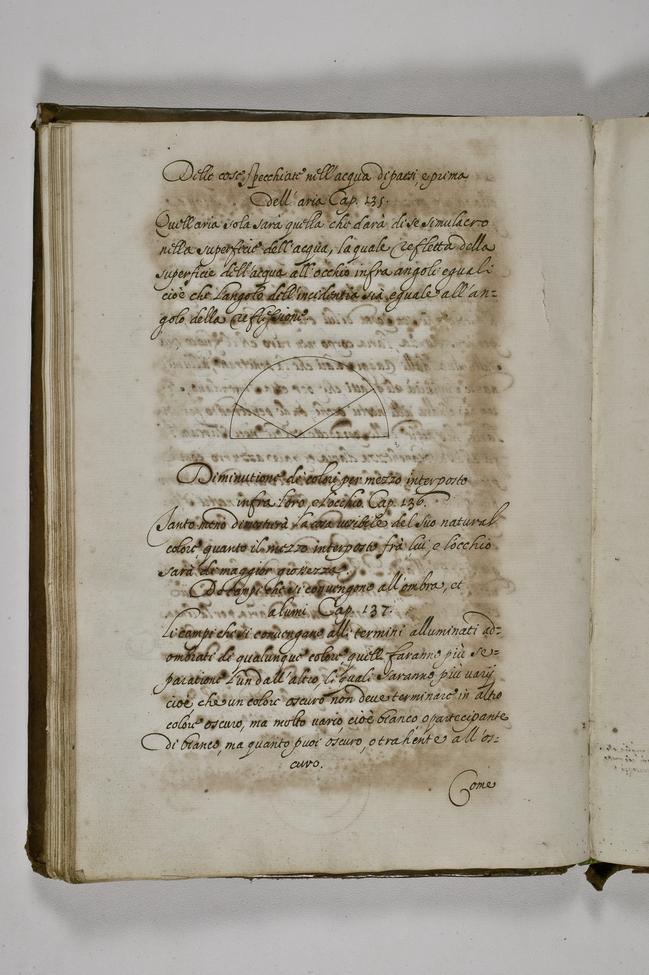 Delle cose specchiate nell'acqua di paesi, e prima
dell'aria Cap. 135.
Quell'aria sola sarà quella che darà di se simulacro
nella superficie dell'acqua, la quale refletta della
superficie dell'acqua all'occhio infra angoli eguali
cioè che l'angolo dell'incidentia sia eguale all'an=
golo della reflessione.
Diminutione de colori per mezzo interposto
infra loro, e l'occhio. Cap. 136.
Tanto meno dimostrarà la cosa visibile del suo natural
colore, quanto il mezzo interposto frà lui, e l'occhio
sarà di maggior grossezza.
De campi che si convengono all'ombra, et
a lumi. Cap. 137.
Li campi che si convengano alli termini alluminati ad=
ombrati di qualunque colore, quelli faranno più se=
paratione l'un dall'altro, li quali saranno più varij
cioè che un colore oscuro non deve terminare in altro
colore oscuro, ma molto vario cioè bianco o partecipante
Di bianco, ma quanto puoi oscuro, o trahente all'os=
curo.
Come